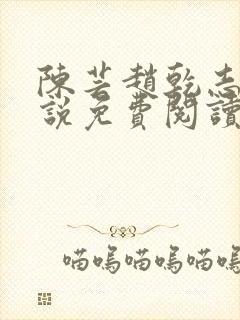 陳芸趙乾志
說免費閱讀
喵嗚喵嗚喵嗚